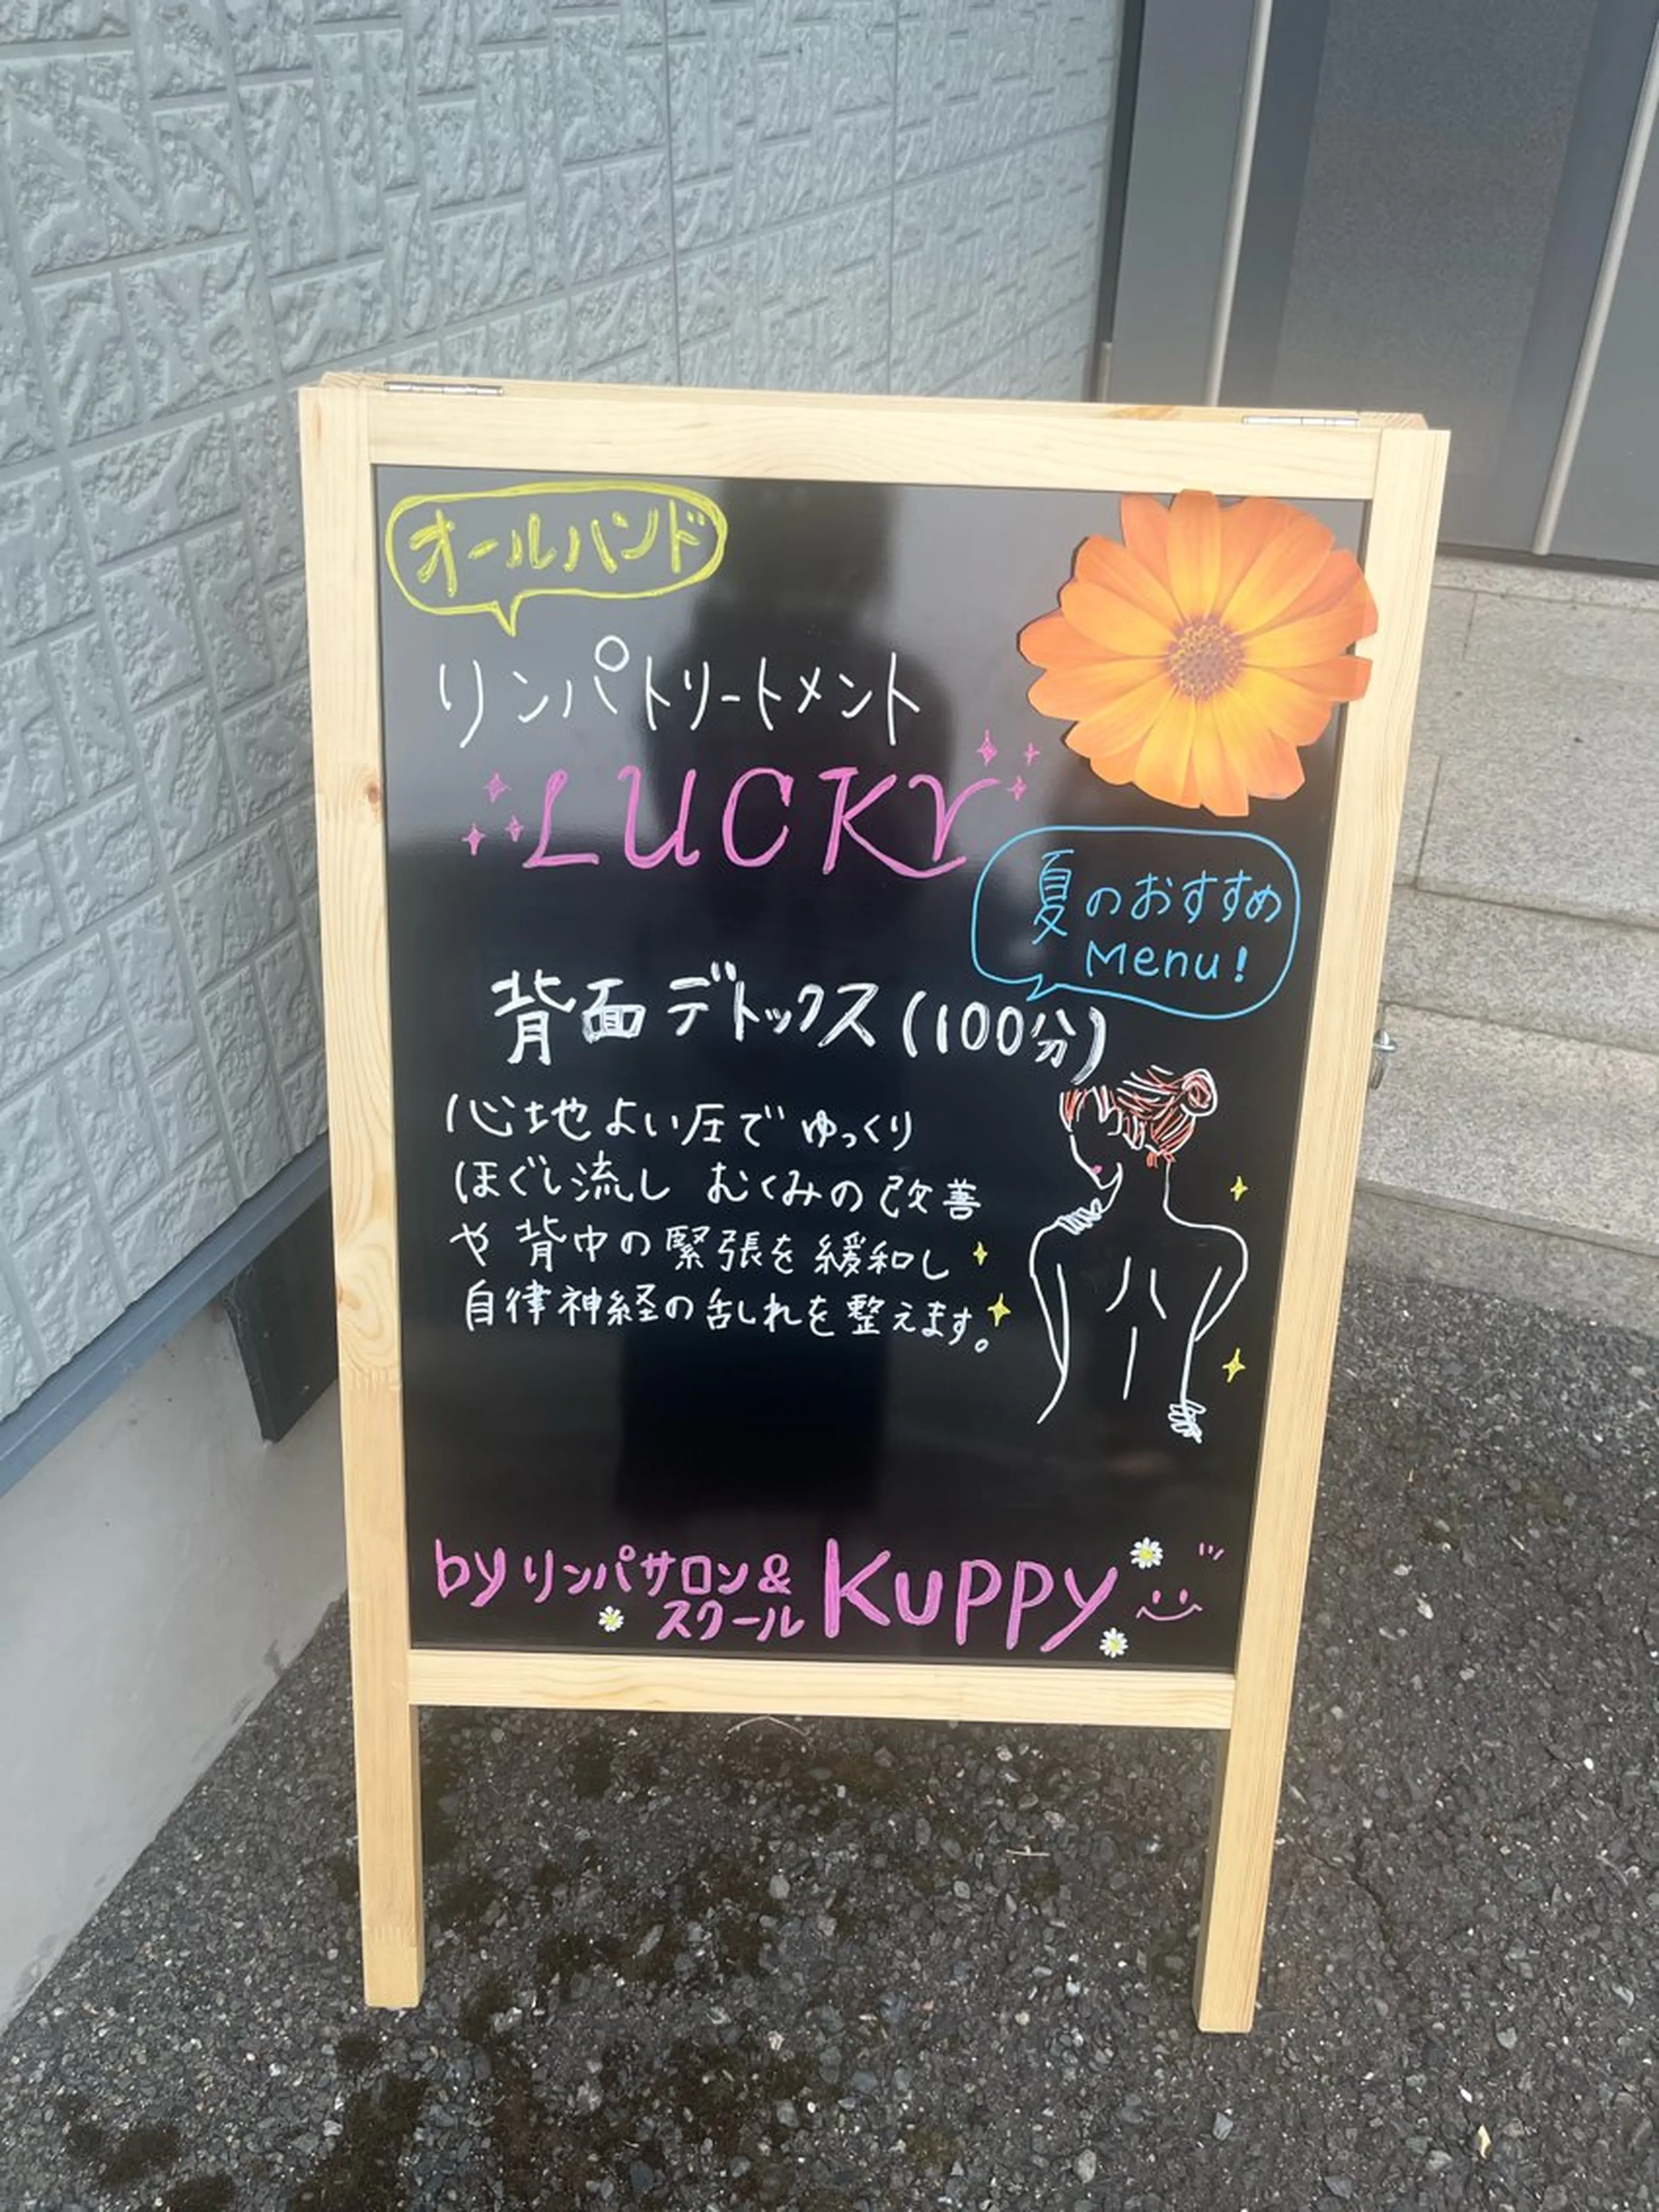 オールハンド
リンパトリートメント
LUCKY
夏のおすすめ
Menu!
背面デトックス(100分)
心地よい圧でゆっくり
ほぐし流し むくみの改善
や背中の緊張を緩和し
自律神経の乱れを整えます。
by リンパサロン&
スクール
Kuppy